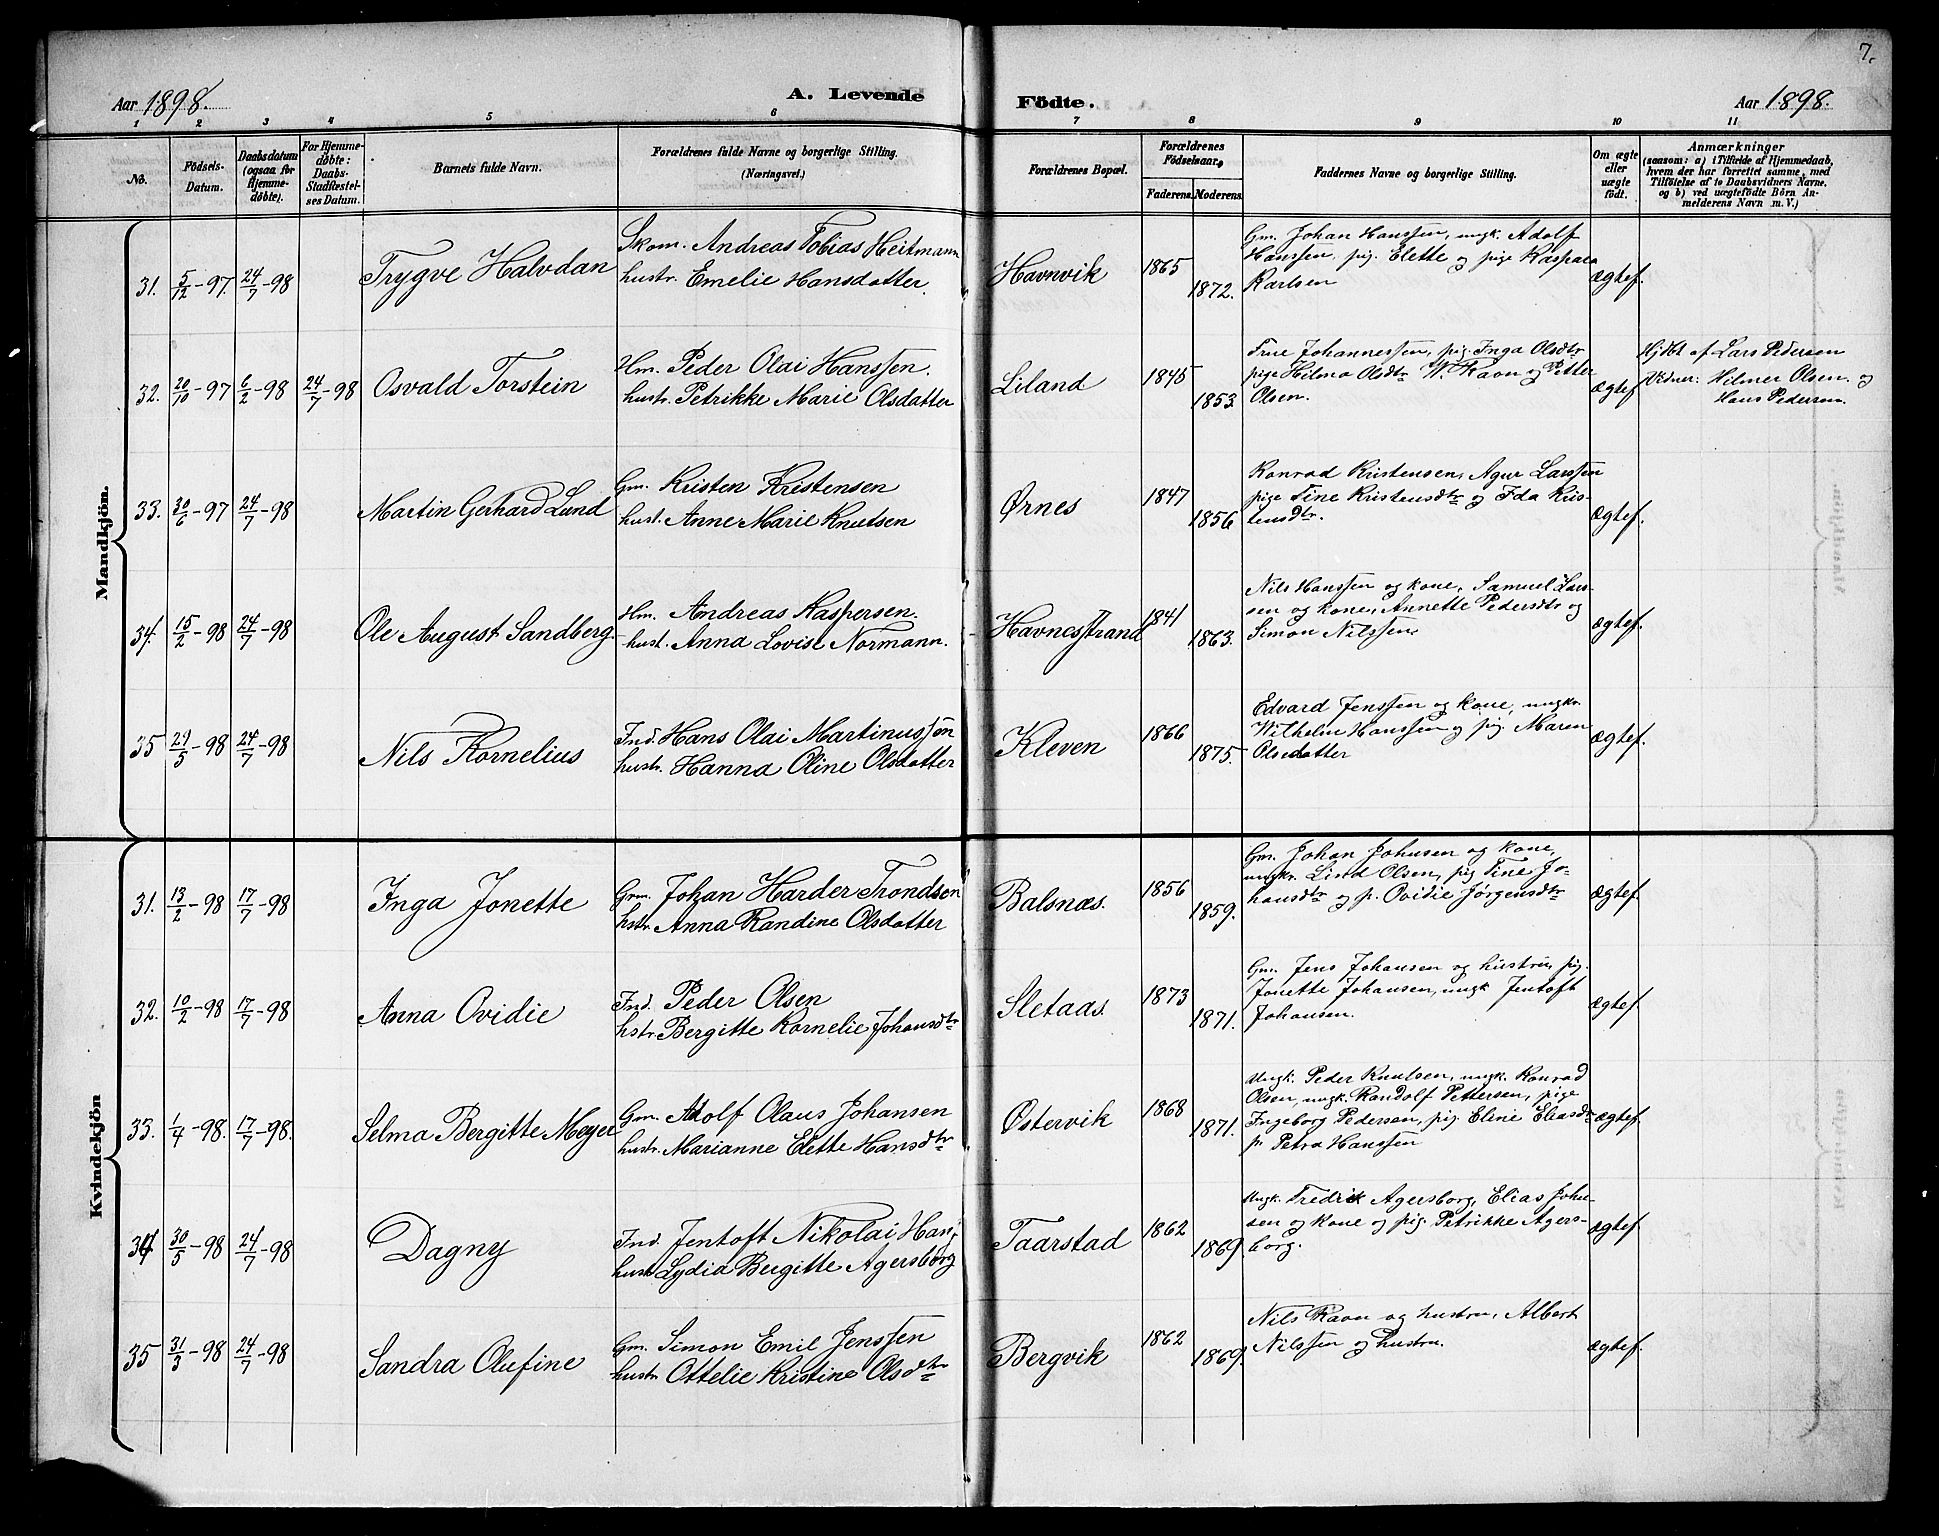 7.
Aar 1898.
A. Levende Födte.
Aar 1898.
1 2 3 4 5 6 7 8 9 10 11
No.
Födsels-
Datum.
Daabsdatum
(ogsaa for
Hjemme-
døbte).
For Hjemme-
døbte:
Daabs-
Stadfæstel-
ses Datum.
Barnets fulde Navn.
Forældrenes fulde Navne og borgerlige Stilling.
(Næringsvei.)
Forældrenes Bopæl.
Forældrenes
Födselsaar,
Faderens. Moderens.
Faddernes Navne og borgerlige Stilling.
Om ægte
eller
uægte
födt.
Anmærkninger
(saasom: a) i Tilfælde af Hjemmedaab,
hvem der har forrettet samme, med
Tilföielse af to Daabsvidners Navne,
og b) ved uægtefödte Börn An-
melderens Navn m. V.)
Mandkjön.
31. 5/12-97. 24/7-98
Trygve Halvdan
Skom. Andreas Tobias Heitmann
hustr. Emelie Hansdatter.
Havnvik
1865
1872.
Gm. Johan Hanssen, ungk. Adolf
Hanssen, pig. Elette og pige Kaspara
Karlsen
Ægtef.
32. 20/10-97 6/2-98 24/7-98
Osvald Torstein
Hm. Peder Olai Hanssen.
hustr. Petrikke Marie Olsdatter
Liland
1845
1853
Johannessen, pig. Inga Olsdtr
pige Hilma Olsdtr W. Ravn og Petter
Olsen.
Ægtef
Hjdbt af Lars Pedersen
Vidner: Hilmer Olsen og
Hans Pedersen.
33. 30/6-97 24/7-98
Martin Gerhard Lund
Gm. Kristen Kristensen
hust. Anne Marie Knutsen
Ørnes
1847
1856
Konrad Kristensen, Larssen
pige Tine Kristensdtr og Ida Kris-
tensdtr.
Ægtef.
34. 15/2-98 24/7-98
Ole August Sandberg
Hm. Andreas Kaspersen.
hust. Anna Lovise Normann.
Havnesstrand
1841
1863.
Nils Hanssen og kone, Samuel Lars-
sen og kone, Annette Pedersdtr og
Simon Nilssen
Ægtef.
35 29/5-98 24/7-98
Nils Kornelius
Ind. Hans Olai Martinussen
hustr. Hanna Oline Olsdatter
Kleven
1866
1875.
Edvard Jenssen og kone, ungkr.
Wilhelm Hanssen og pig. Maren
Olsdatter
Ægtef.
Kvindekjön
31. 13/2-98 17/7-98
Inga Jonette
Grm. Johan Harder Trondsen
hstr. Anna Randine Olsdatter
Balsnæs.
1856
1859.
Gm. Johan Johnsen og kone,
ungkr. Lind Olsen, pig Tine Jo-
hansdtr og p. Ovidie Jørgensdtr
Ægtef.
32. 10/2-98 17/7-98
Anna Ovidie
Ind. Peder Olsen
hstr. Bergitte Kornelie Johansdtr
Sletaas.
1873
1871.
Gm. Jens Johansen og hustru, pig.
Jonette Johansen, ungk Jentoft
Johansen.
Ægtef.
33. 1/4-98. 17/7-98.
Selma Bergitte Meyer
Gm. Adolf Olaus Johansen
hustr. Marianne Elette Hansdtr
Østervik
1868
1871.
Ungk. Peder Knutsen, ungk. Konrad
Olsen, ungk. Randolf Pettersen, pige
Ingeborg Pedersen, pig. Eline Eliasdtr
p. Petra Hanssen
Ægtef.
34 30/5-98 24/7-98
Dagny
Ind. Jentoft Nikolai Han,
hustr Lydia Bergitte Agersborg
Taarstad
1862
1869
Ungk. Fredrik Agersborg, Elias John-
sen og kone og pig. Petrikke Agers-
borg.
Ægtef.
35 31/3-98 24/7-98
Sandra Olufine
Gm. Simon Emil Jenssen
hustr Ottelie Kristine Olsdtr
Bergvik
1862
1869.
Nils Ravn og hustru, Albert
Nilssen og hustru.
Ægtef.